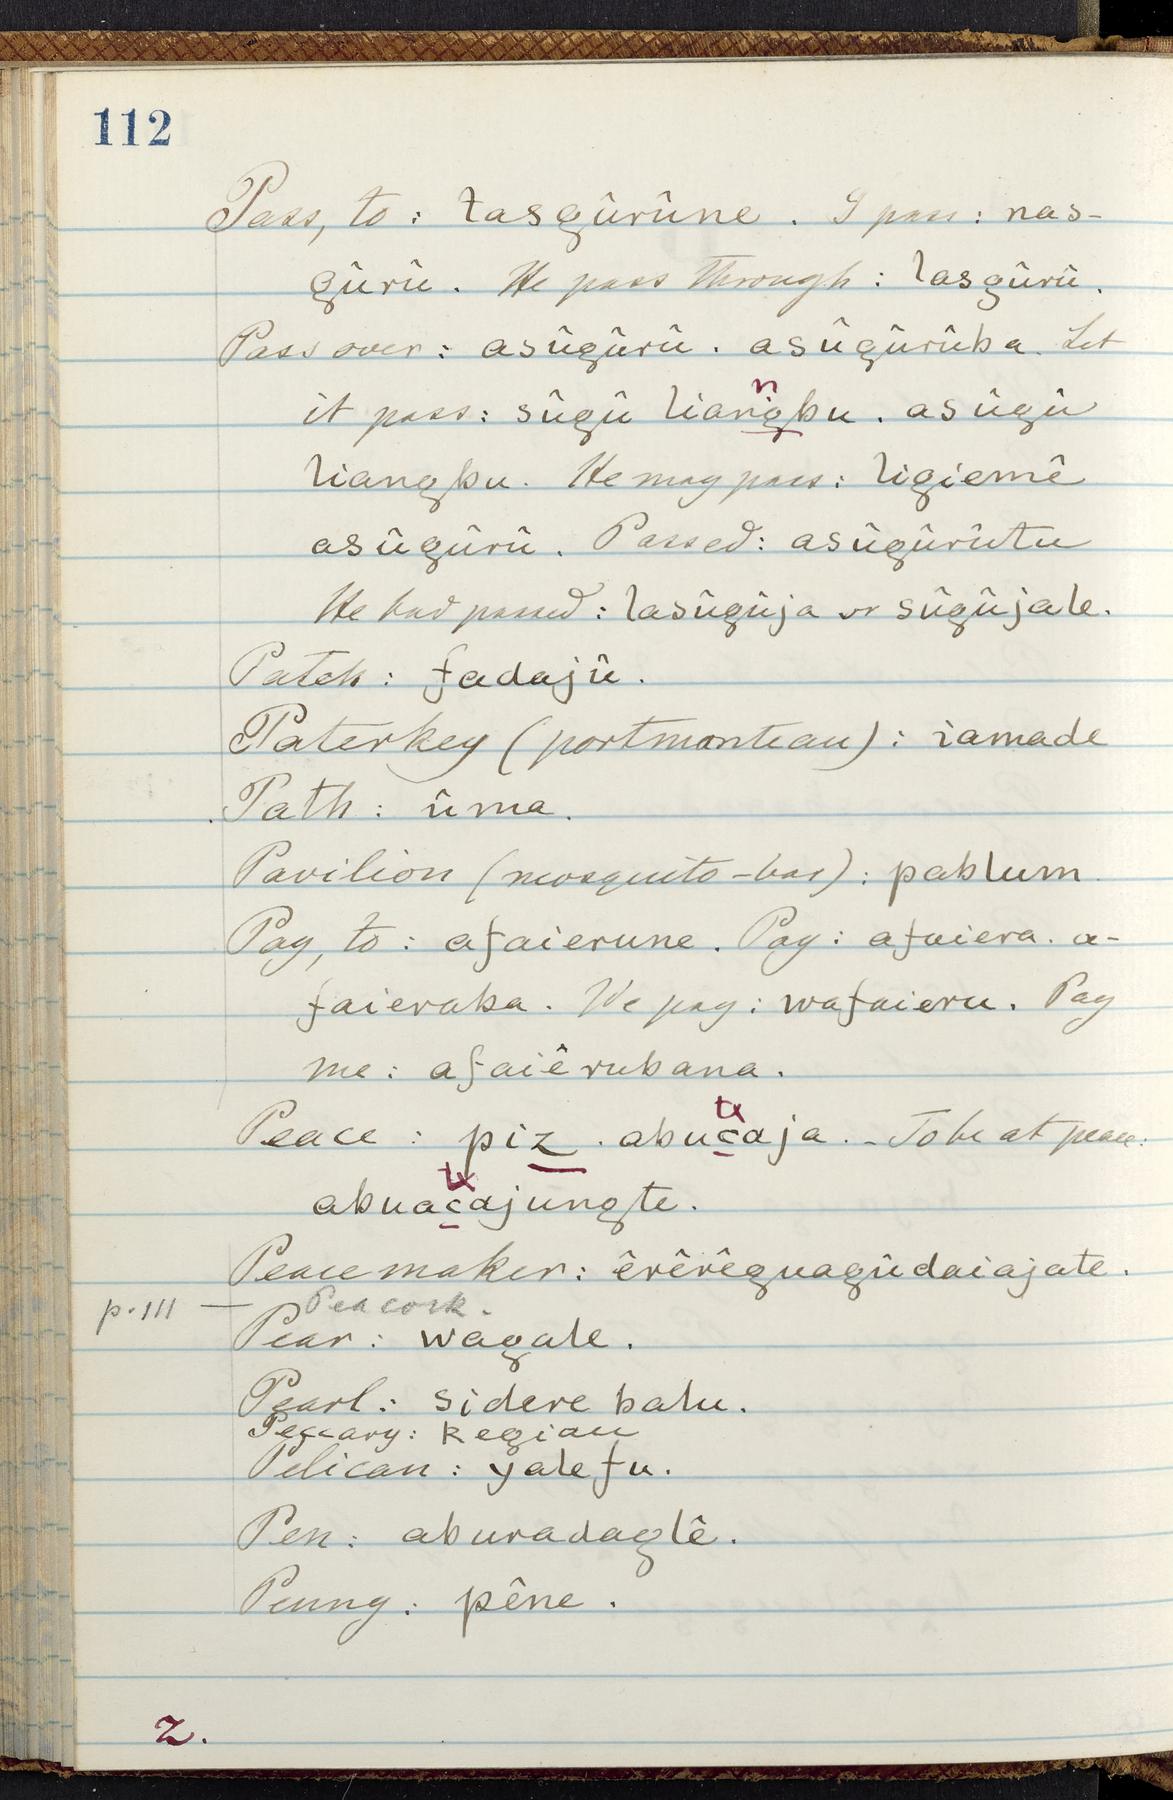 112
Pass, to: tasgûrûne. I pass: nas-
gûrû. He pass through: lasgûrû.
Pass over: asûgûrû. asûgûrûba. Let
n
it pass: sûgû liangbu. asûgû
liangbu. He may pass: ligiemê
asûgûrû. Passed: asûgûrûtu
He had passed: lasûgûja or sûgûjale.
Patch: fadajû.
Paterkey (portmanteau): iamade
Path: ûma.
Pavilion (mosquito-bar): pablum
Pay, to: afaierune. Pay: afaiera. a-
faieraba. We pay: wafaieru. Pay
me: afaiêrubana.
Peace: piz. abucaja. - To be at peace:
abuacajungte.
Peacemaker: êrêrêguagûdaiajate.
p. 111 — Peacock.
Pear: wagale.
Pearl: sidere balu.
Peccary: kegiau
Pelican: yalefu.
Pen: aburadaglê.
Penny: pêne.
2.